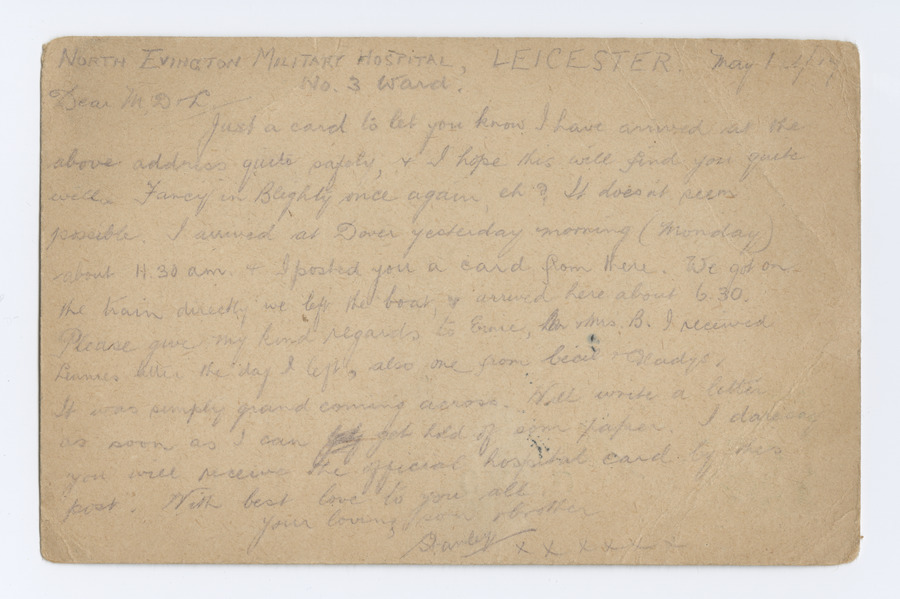 NORTH EVINGTON MILITARY HOSPITAL, LEICESTER. May 1
No. 3 Ward.
Dear M. D & L.
Just a card to let you know I have arrived at the
above address quite safely, & I hope this will find you quite
well. Fancy in Blighty once again eh? It doesn't seem
possible. I arrived at Dover yesterday morning (Monday)
about 11.30 am. & I posted you a card from there. We got on
the train directly we left the boat, & arrived here about 6.30.
Please give my kind regards to Ernie, Mr & Mrs. B. I received
letter the day I left, also one from Cecil & Gladys.
It was simply grand coming across. Will write a letter
as soon as I can get hold of some paper. I daresay
you will receive the official hospital card by this
post". With best love to you all
Your loving son & brother
Stanley x x x x x x